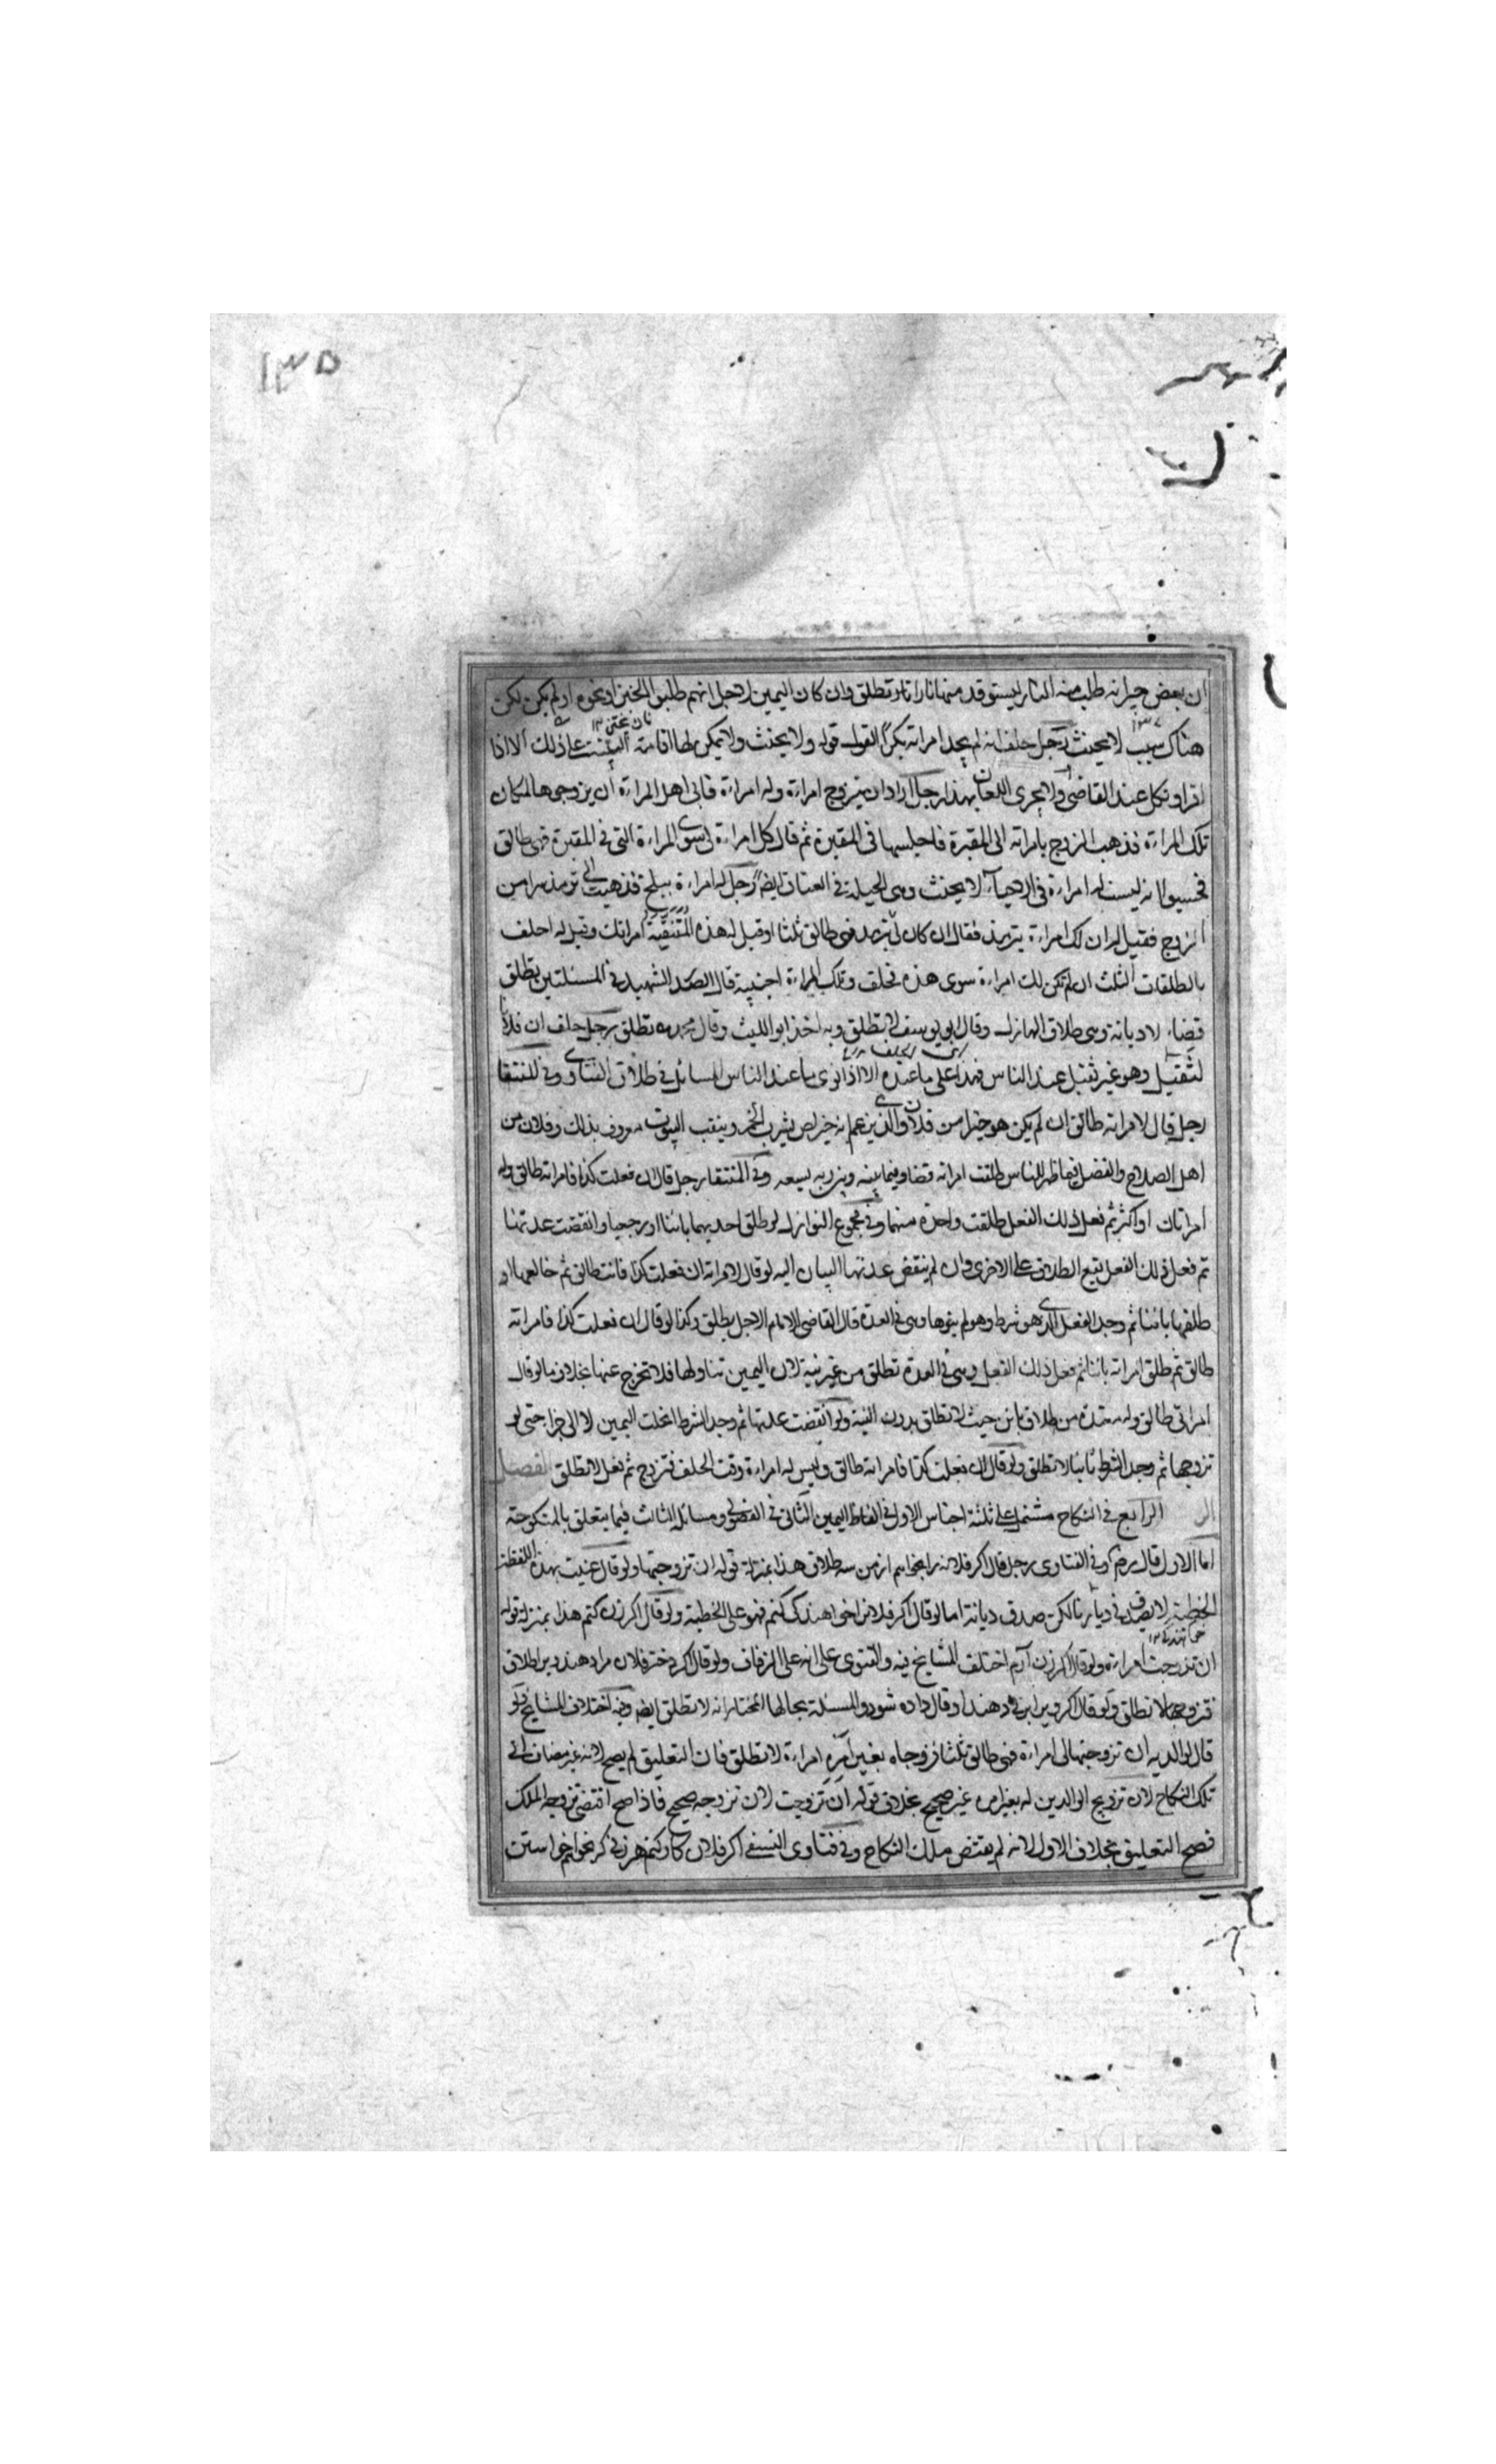 ١٣٥
ان بعض جيرانه طلب منه النار ليستوقد منها نارا نار تطلق وان كان اليمين لاجل انهم طلبوا الخبز او نحوه او لم يكن لكن
هناك سبب لا يحنث رجل حلف انه لم يجد امراته بكرا القول قوله ولا يحنث ولا يمكن لها اقامة البينة على ذلك الا اذا
اقر او نكل عند القاضى ولا يجرى اللعان بهذا رجل اراد ان يتزوج امراءة وله امراءة فابى اهل المراءة ان يزوجوها لمكان
تلك المراءة فذهب الزوج بامراته الى المقبرة فاجلسها فى المقبرة ثم قال كل امراءة لى سوى المراءة التى فى المقبرة فهى طالق
فحسبوا انه ليست له امراءة فى الاحياء لا يحنث وهى الحيلة فى العتاق ايضا رجل له امراءة ببلخ فذهبت الى ترمذ سرا من
الزوج فقيل له ان لك امراءة بترمذ فقال ان كان لى بترمذ فهى طالق ثلثا او قيل له هذه المتنقبة امراتك وقيل له احلف
بالطلقات الثلث ان لم تكن لك امراءة سوى هذه فحلف وتلك المراءة اجنبية قال الصدر الشهيد فى المسئلتين تطلق
قضاء لا ديانة وهى طلاق الهازل وقال ابو يوسف لا تطلق وبه اخذ ابو الليث وقال محمد رح تطلق رجل حلف ان فلانا
لثقيل وهو غير ثقيل عند الناس فهذا على ما عنده الا اذا نوى ما عند الناس المسائل فى طلاق الفتاوى وفى المنتقا
رجل قال لامراته طالق ان لم يكن هو خيرا من فلان والذين يزعم انه خير لص يشرب الخمر وينقب البيوت معروف بذلك وفلان من
اهل الصلاح والفضل فيما ظهر للناس طلقت امراته قضا وفيما بينه وبين ربه يسعه وفى المنتقا رجل قال ان فعلت كذا فامراته طالق وله
امراتان او اكثر ثم فعل ذلك الفعل طلقت واحدة منهما وفى مجموع النوازل لو طلق احديهما بائنا او رجعيا وانقضت عدتها
ثم فعل ذلك الفعل يقع الطلاق على الاخرى وان لم ينقض عدتها البيان اليه لو قال لامراته ان فعلت كذا فانت طالق ثم خالعها او
طلقها بائنا ثم وجد الفعل الذى هو شرط وهو لم ينوها وهى فى العدة قال القاضى الامام الاجل يطلق وكذا لو قال ان فعلت كذا فامراته
طالق ثم طلق امراته بائنا ثم فعل ذلك الفعل وهى فى العدة تطلق من غير نية لان اليمين تناولها فلا تخرج عنها بخلاف ما لو قال
امراتى طالق وله معتدة من طلاق بائن حيث لا تطلق بدون النية ولو انقضت عدتها ثم وجد الشرط انحلت اليمين لا الى جزاء حتى لو
تزوجها ثم وجد الشرط ثانيا لا تطلق ولو قال ان فعلت كذا فامراته طالق وليس له امراءة وقت الحلف فتزوج ثم فعل لا تطلق الفصل
الرابع فى النكاح مشتمل على ثلثة اجناس الاول فى الفاظ اليمين الثانى فى الفضولى ومسائل الثالث فيما يتعلق بالمنكوحة
اما الاول قال رض وفى الفتاوى رجل قال اكر فلانه را بخواهم از من سه طلاق هذا بمنزلة قوله ان تزوجتها ولو قال عنيت بهذه اللفظة
الخطبة لا يصدق فى ديارنا لكن صدق ديانة اما لو قال اكر فلانه را خواهندكى كنم فهو على الخطبة ولو قال اكر زن كنم هذا بمنزلة قوله
ان تزوجت امراءة ولو قال اكر زن آرم اختلف المشايخ فيه والفتوى على انه على الزفاف ولو قال اكر دختر فلان مرا دهند يرا طلاق
فتزوجها لا تطلق ولو قال اكر ويرا بزنى دهند او قال داده شود والمسئلة بحالها المختار انه لا تطلق ايضا وفيه اختلاف المشايخ ولو
قال لوالديه ان تزوجتمالى امراءة فهى طالق ثلثا فزوجاه بغير امره امراءة لا تطلق فان التعليق لم يصح لانه غير مضاف الى
تلك النكاح لان تزويج الوالدين له بغير امره غير صحيح بخلاف قوله ان تزوجت لان تزوجه صحيح فاذا صح اقتضى تزوجه الملك
فصح التعليق بخلاف الاول لانه لم يقتض ملك النكاح وفى فتاوى النسفى اكر فلان كار كنم هر زنى كه بخواهم خواستن